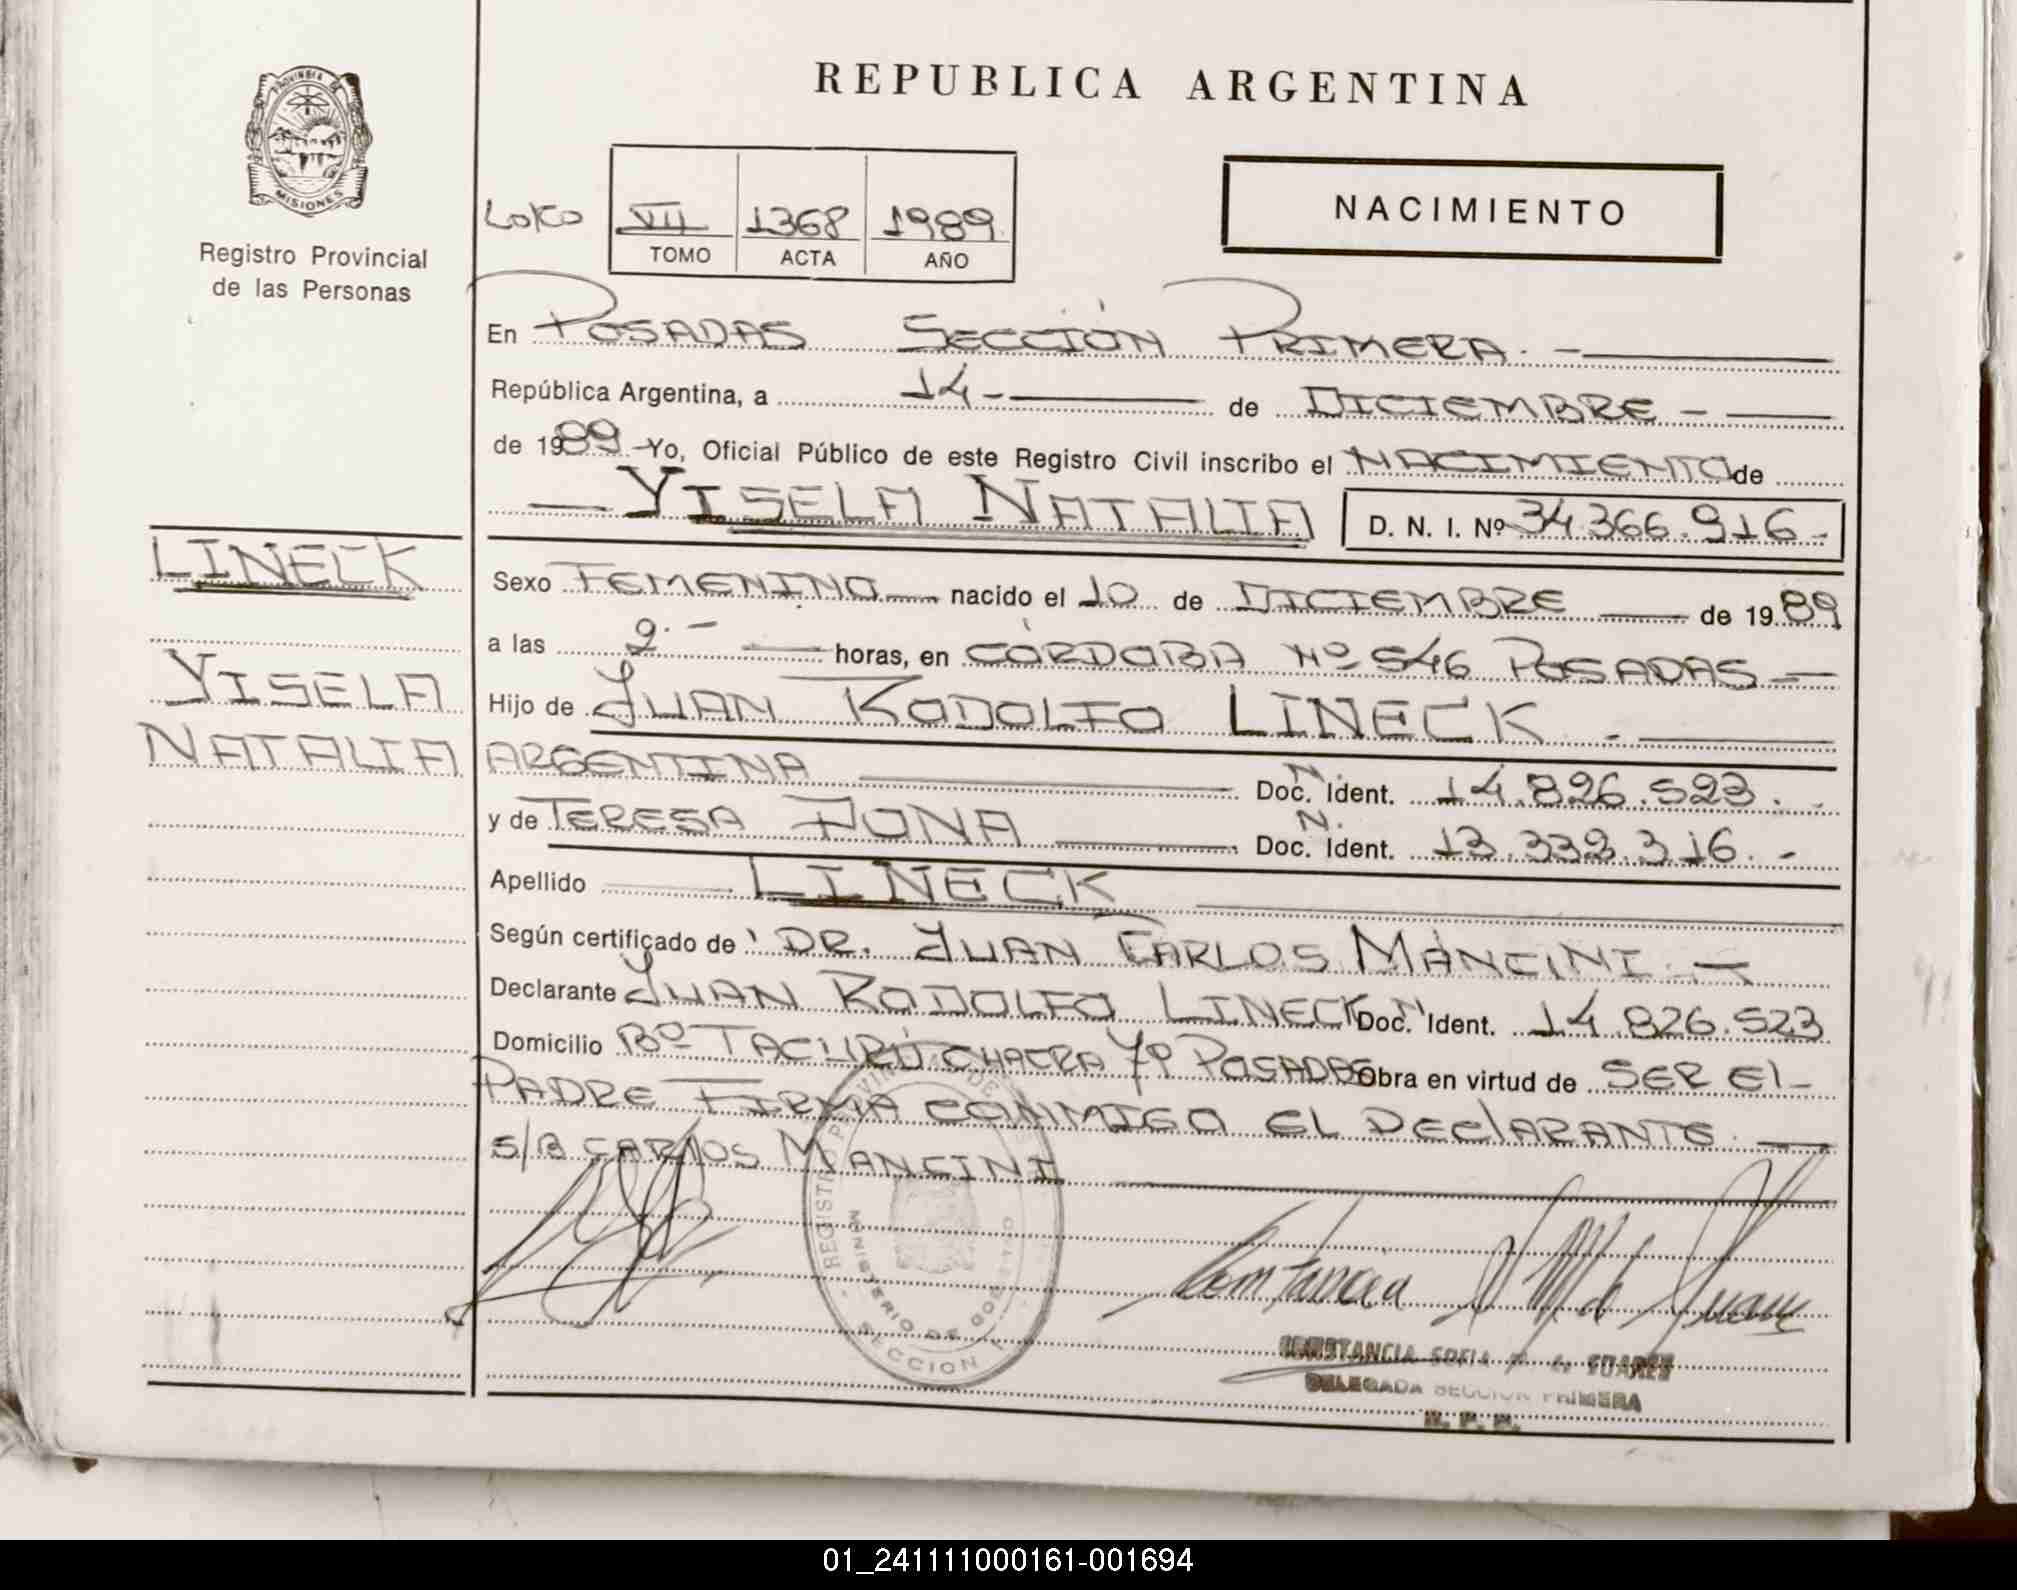 REPUBLICA ARGENTINA
PROVINCIA DE
MISIONES
Registro Provincial
de las Personas
VII 1368 1989
TOMO ACTA AÑO
NACIMIENTO
En POSADAS SECCIÓN PRIMERA.-
República Argentina, a 14- de DICIEMBRE -
de 1989.- Yo, Oficial Público de este Registro Civil inscribo el NACIMIENTO de
YISELA NATALIA D. N. I. Nº 34.366.916.-
LINECK
Sexo FEMENINO nacido el 10 de DICIEMBRE de 1989
a las 2.- horas, en CÓRDOBA Nº 546 POSADAS.-
YISELA
Hijo de JUAN RODOLFO LINECK.-
NATALIA
ARGENTINA Doc. N. Ident. 14.826.523.-
y de TERESA Doc. N. Ident. 13.332.316.-
Apellido LINECK
Según certificado de DR. JUAN CARLOS MANCINI.-
Declarante JUAN RODOLFO LINECK Doc. N Ident. 14.826.523
Domicilio Bº TACURÚ CHACRA POSADAS Obra en virtud de SER El
PADRE FIRMA CONMIGO EL DEClARANTE.-
S/B CARLOS MANCINI
Constancia
CONSTANCIA SOFIA M. de SUAREZ
DELEGADA SECCION PRIMERA
R. P. P.
REGISTRO PROVINCIAL DE
MINISTERIO DE GOBIERNO
SECCION 1
01_241111000161-001694